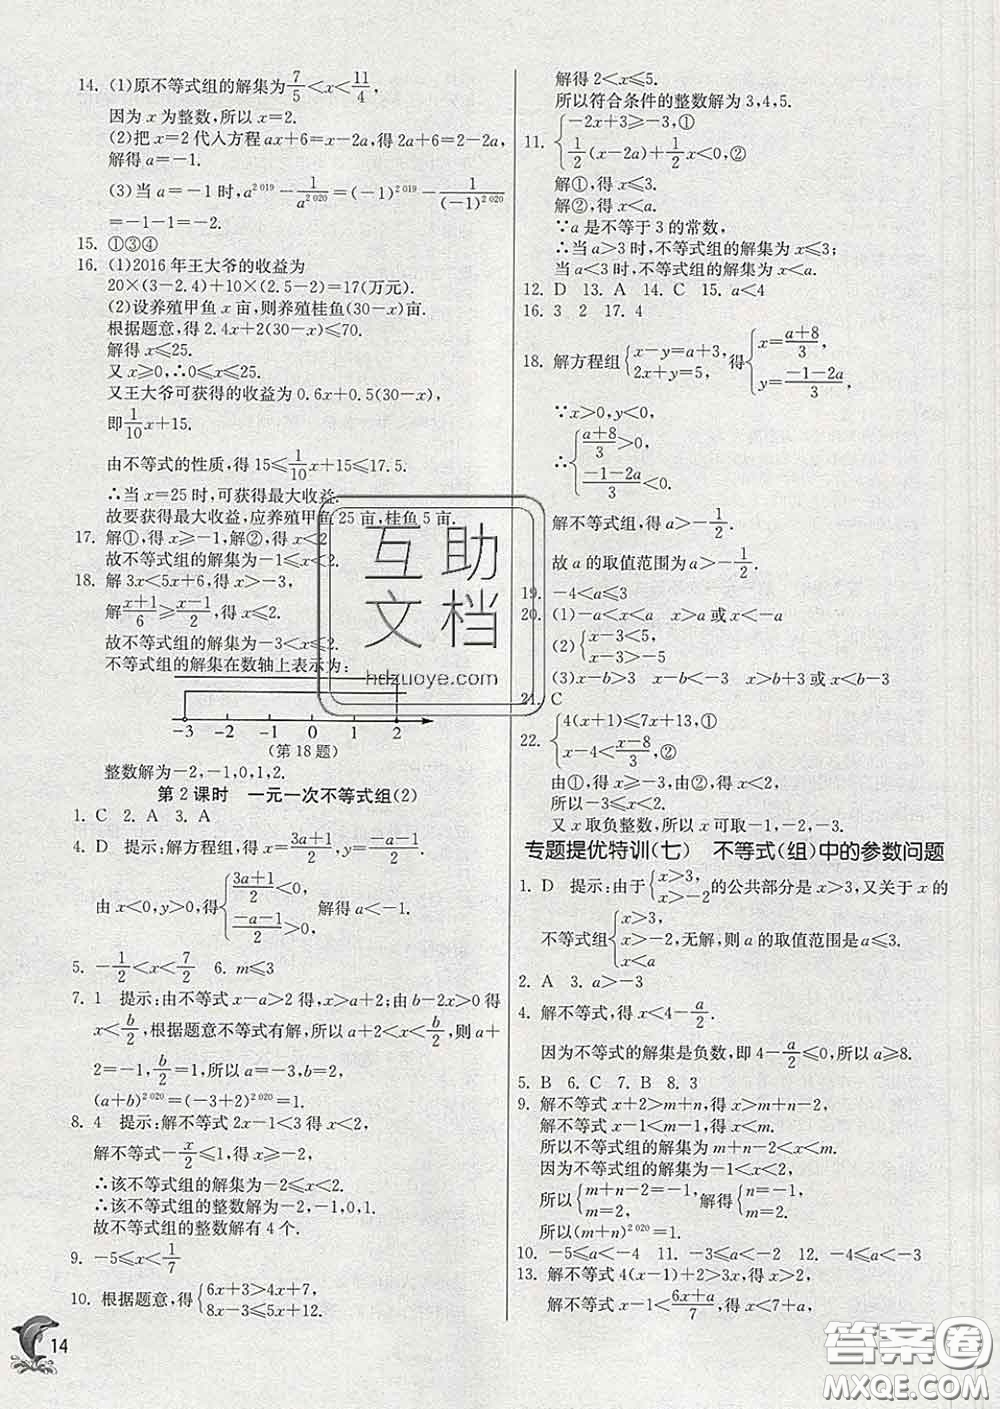 14. (1)原不等式组的解集为7/5<x<11/4,
因为 x 为整数,所以 x=2.
(2)把 x=2 代入方程 ax+6=x-2a,得 2a+6=2-2a,
解得 a=-1.
(3)当 a=-1 时,a^2 019-1/a^2 020=(-1)^2 019-1/(-1)^2 020
=-1-1=-2.
15. ①③④
16. (1)2016 年王大爷的收益为
20×(3-2.4)+10×(2.5-2)=17(万元).
(2)设养殖甲鱼 x 亩,则养殖桂鱼(30-x)亩.
根据题意,得 2.4x+2(30-x)≤70.
解得 x≤25.
又 x≥0,∴0≤x≤25.
又王大爷可获得的收益为 0.6x+0.5(30-x),
即1/10x+15.
由不等式的性质,得 15≤1/10x+15≤17.5.
∴当 x=25 时,可获得最大收益.
故要获得最大收益,应养殖甲鱼 25 亩,桂鱼 5 亩.
17. 解①,得 x≥-1,解②,得 x<2.
故不等式组的解集为-1≤x<2.
18. 解 3x<5x+6,得 x>-3,
解(x+1)/6≥(x-1)/2,得 x≤2.
故不等式组的解集为-3<x≤2.
不等式组的解集在数轴上表示为:
-3 -2 -1 0 1 2
(第 18 题)
整数解为-2,-1,0,1,2.
第 2 课时 一元一次不等式组(2)
1. C 2. A 3. A
4. D 提示:解方程组,得 x=(3a+1)/2,y=(-a-1)/2.
由 x<0,y>0,得{(3a+1)/2<0, (-a-1)/2>0, 解得 a<-1.
5. -1/2<x<7/2 6. m≤3
7. 1 提示:由不等式 x-a>2 得,x>a+2;由 b-2x>0 得
x<b/2,根据题意不等式有解,所以 a+2<x<b/2,则 a+
2=-1,b/2=1,所以 a=-3,b=2.
(a+b)^2 020=(-3+2)^2 020=1.
8. 4 提示:解不等式 2x-1<3 得 x<2,
解不等式-x/2≤1,得 x≥-2,
∴该不等式组的解集为-2≤x<2.
∴该不等式组的整数解为-2,-1,0,1.
故不等式组的整数解有 4 个.
9. -5≤x<1/7
10. 根据题意,得{6x+3>4x+7, 8x-3≤5x+12.
14
解得 2<x≤5.
所以符合条件的整数解为 3,4,5.
11. {-2x+3≥-3,① 1/2(x-2a)+1/2x<0,②
解①,得 x≤3.
解②,得 x<a.
∵a 是不等于 3 的常数,
∴当 a>3 时,不等式组的解集为 x≤3;
当 a<3 时,不等式组的解集为 x<a.
12. D 13. A 14. C 15. a<4
16. 3 2 17. 4
18. 解方程组{x-y=a+3, 2x+y=5, 得{x=(a+8)/3, y=(-1-2a)/3,
∵x>0,y<0,
∴{(a+8)/3>0, (-1-2a)/3<0.
解不等式组,得 a>-1/2.
故 a 的取值范围为 a>-1/2.
19. -4<a≤3
20. (1)-a<x<a x>a 或 x<-a
(2){x-3<5, x-3>-5
(3)x-b>3 x-b<-3 x>b+3 或 x<b-3
21. C
22. {4(x+1)≤7x+13,① x-4<(x-8)/3,②
由①,得 x≥-3,由②,得 x<2,
所以-3≤x<2.
又 x 取负整数,所以 x 可取-1,-2,-3.
专题提优特训(七) 不等式(组)中的参数问题
1. D 提示:由于{x>3, x>-2的公共部分是 x>3,又关于 x 的
不等式组{x>3, x>-2, x<a 无解,则 a 的取值范围是 a≤3.
2. A 3. a>-3
4. 解不等式,得 x<4-a/2.
因为不等式的解集是负数,即 4-a/2≤0,所以 a≥8.
5. B 6. C 7. B 8. 3
9. 解不等式 x+2>m+n,得 x>m+n-2.
解不等式 x-1<m-1,得 x<m.
所以不等式组的解集为 m+n-2<x<m.
因为不等式组的解集为-1<x<2,
所以{m+n-2=-1, m=2, 解得{n=-1, m=2.
所以(m+n)^2 020=1.
10. -5≤a<-4 11. -3≤a<-2 12. -4≤a<-3
13. 解不等式 4(x-1)+2>3x,得 x>2,
解不等式 x-1<(6x+a)/7,得 x<7+a,
互助文档
hdzuoye.com
答案圈
MXQE.COM